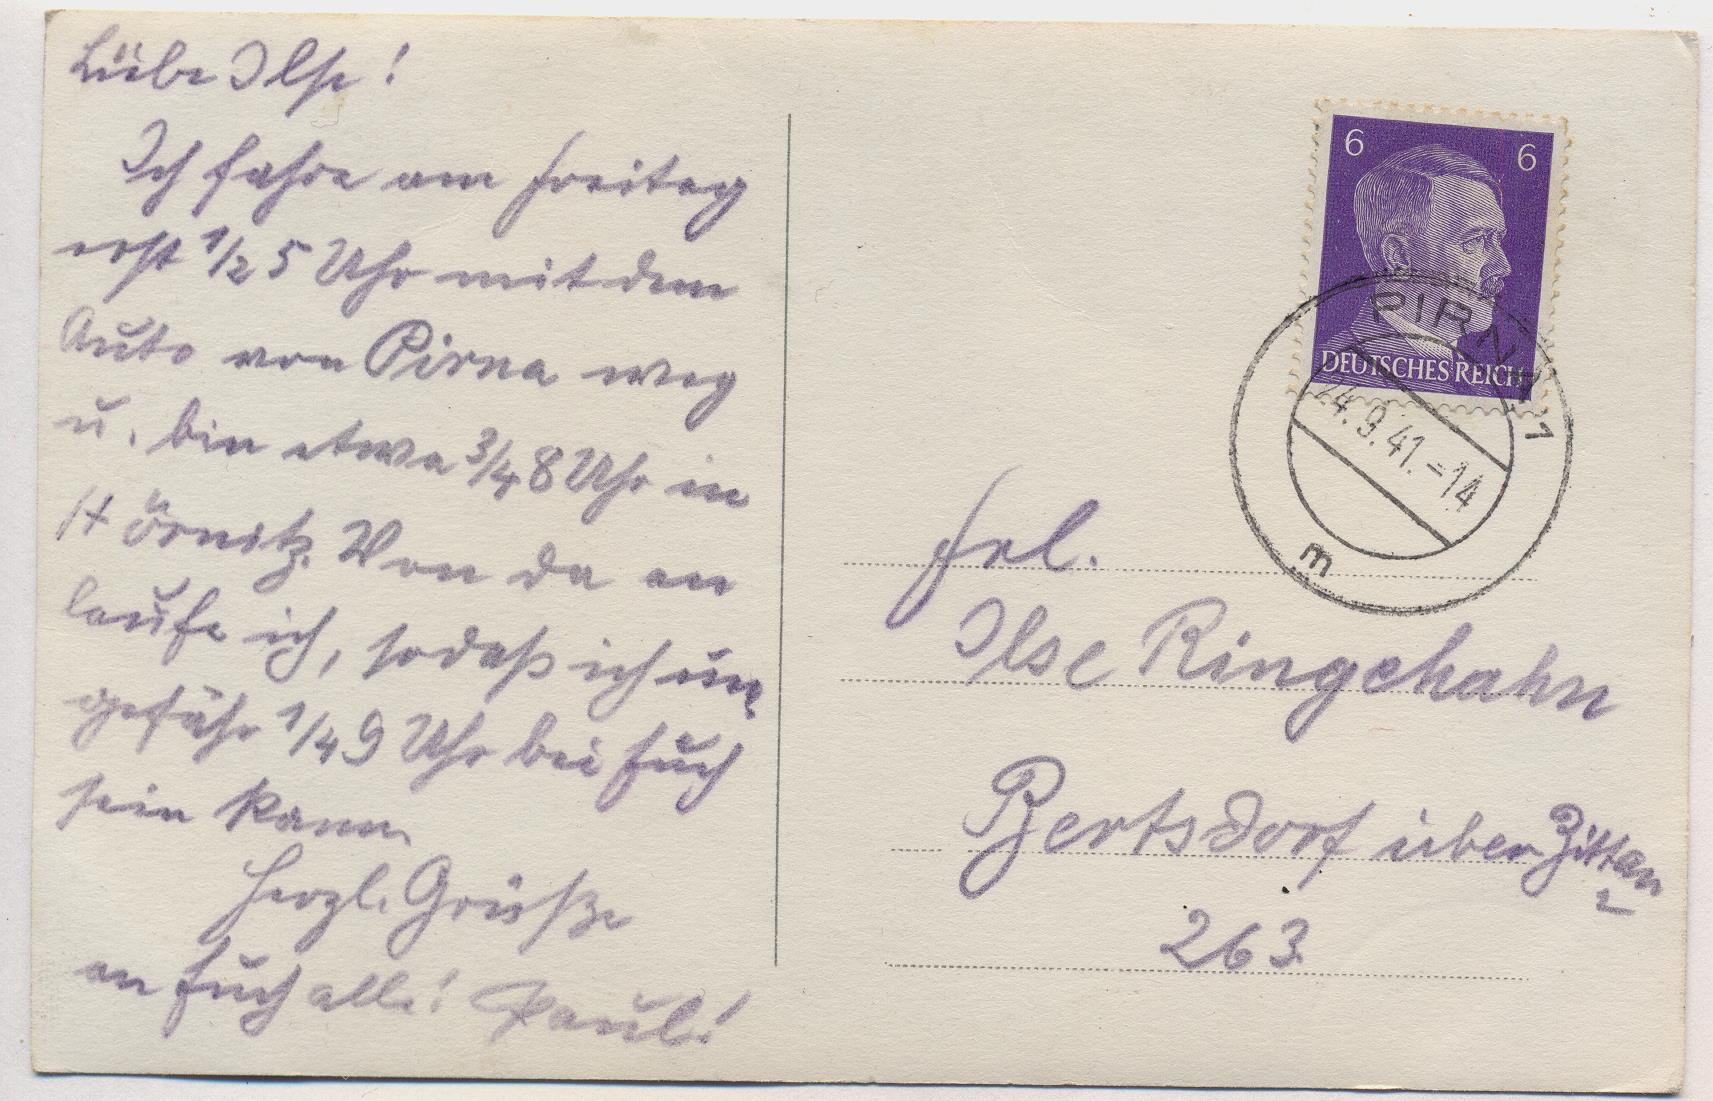 Liebe Ilse!
Ich fahre am Freitag
erst 1/2 5 Uhr mit dem
Auto von Pirna weg
u. bin etwa 3/4 8 Uhr in
Hörnitz. Von da an
laufe ich, sodaß ich un-
gefähr 1/4 9 Uhr bei Euch
sein kann.
Herzl. Grüße
an Euch alle! Paul!
6 6
DEUTSCHES REICH
PIRNA 1
24.9.41.-14
m
Frl.
Ilse Ringehahn
Bertsdorf über Zittau
2
263.